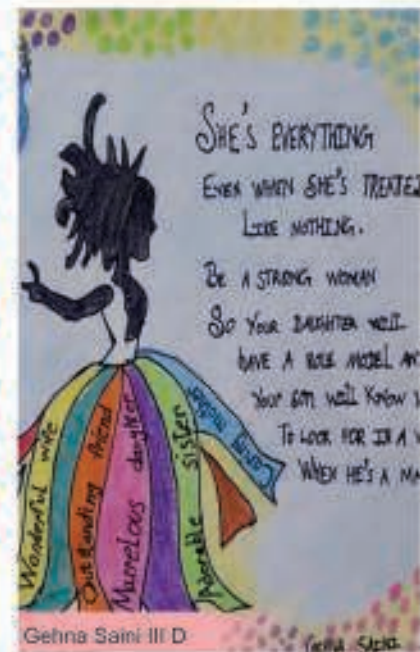 SHE'S EVERYTHING
EVEN WHEN SHE'S TREATED
LIKE NOTHING.
BE A STRONG WOMAN
SO YOUR DAUGHTER WILL
HAVE A ROLE MODEL AN
YOUR SON WILL KNOW W
TO LOOK FOR IN A W
WHEN HE'S A MA
Wonderful wife
Outstanding friend
Marvelous daughter
Adorable sister
Caring mother
Gehna Saini III D
GEHNA SAINI